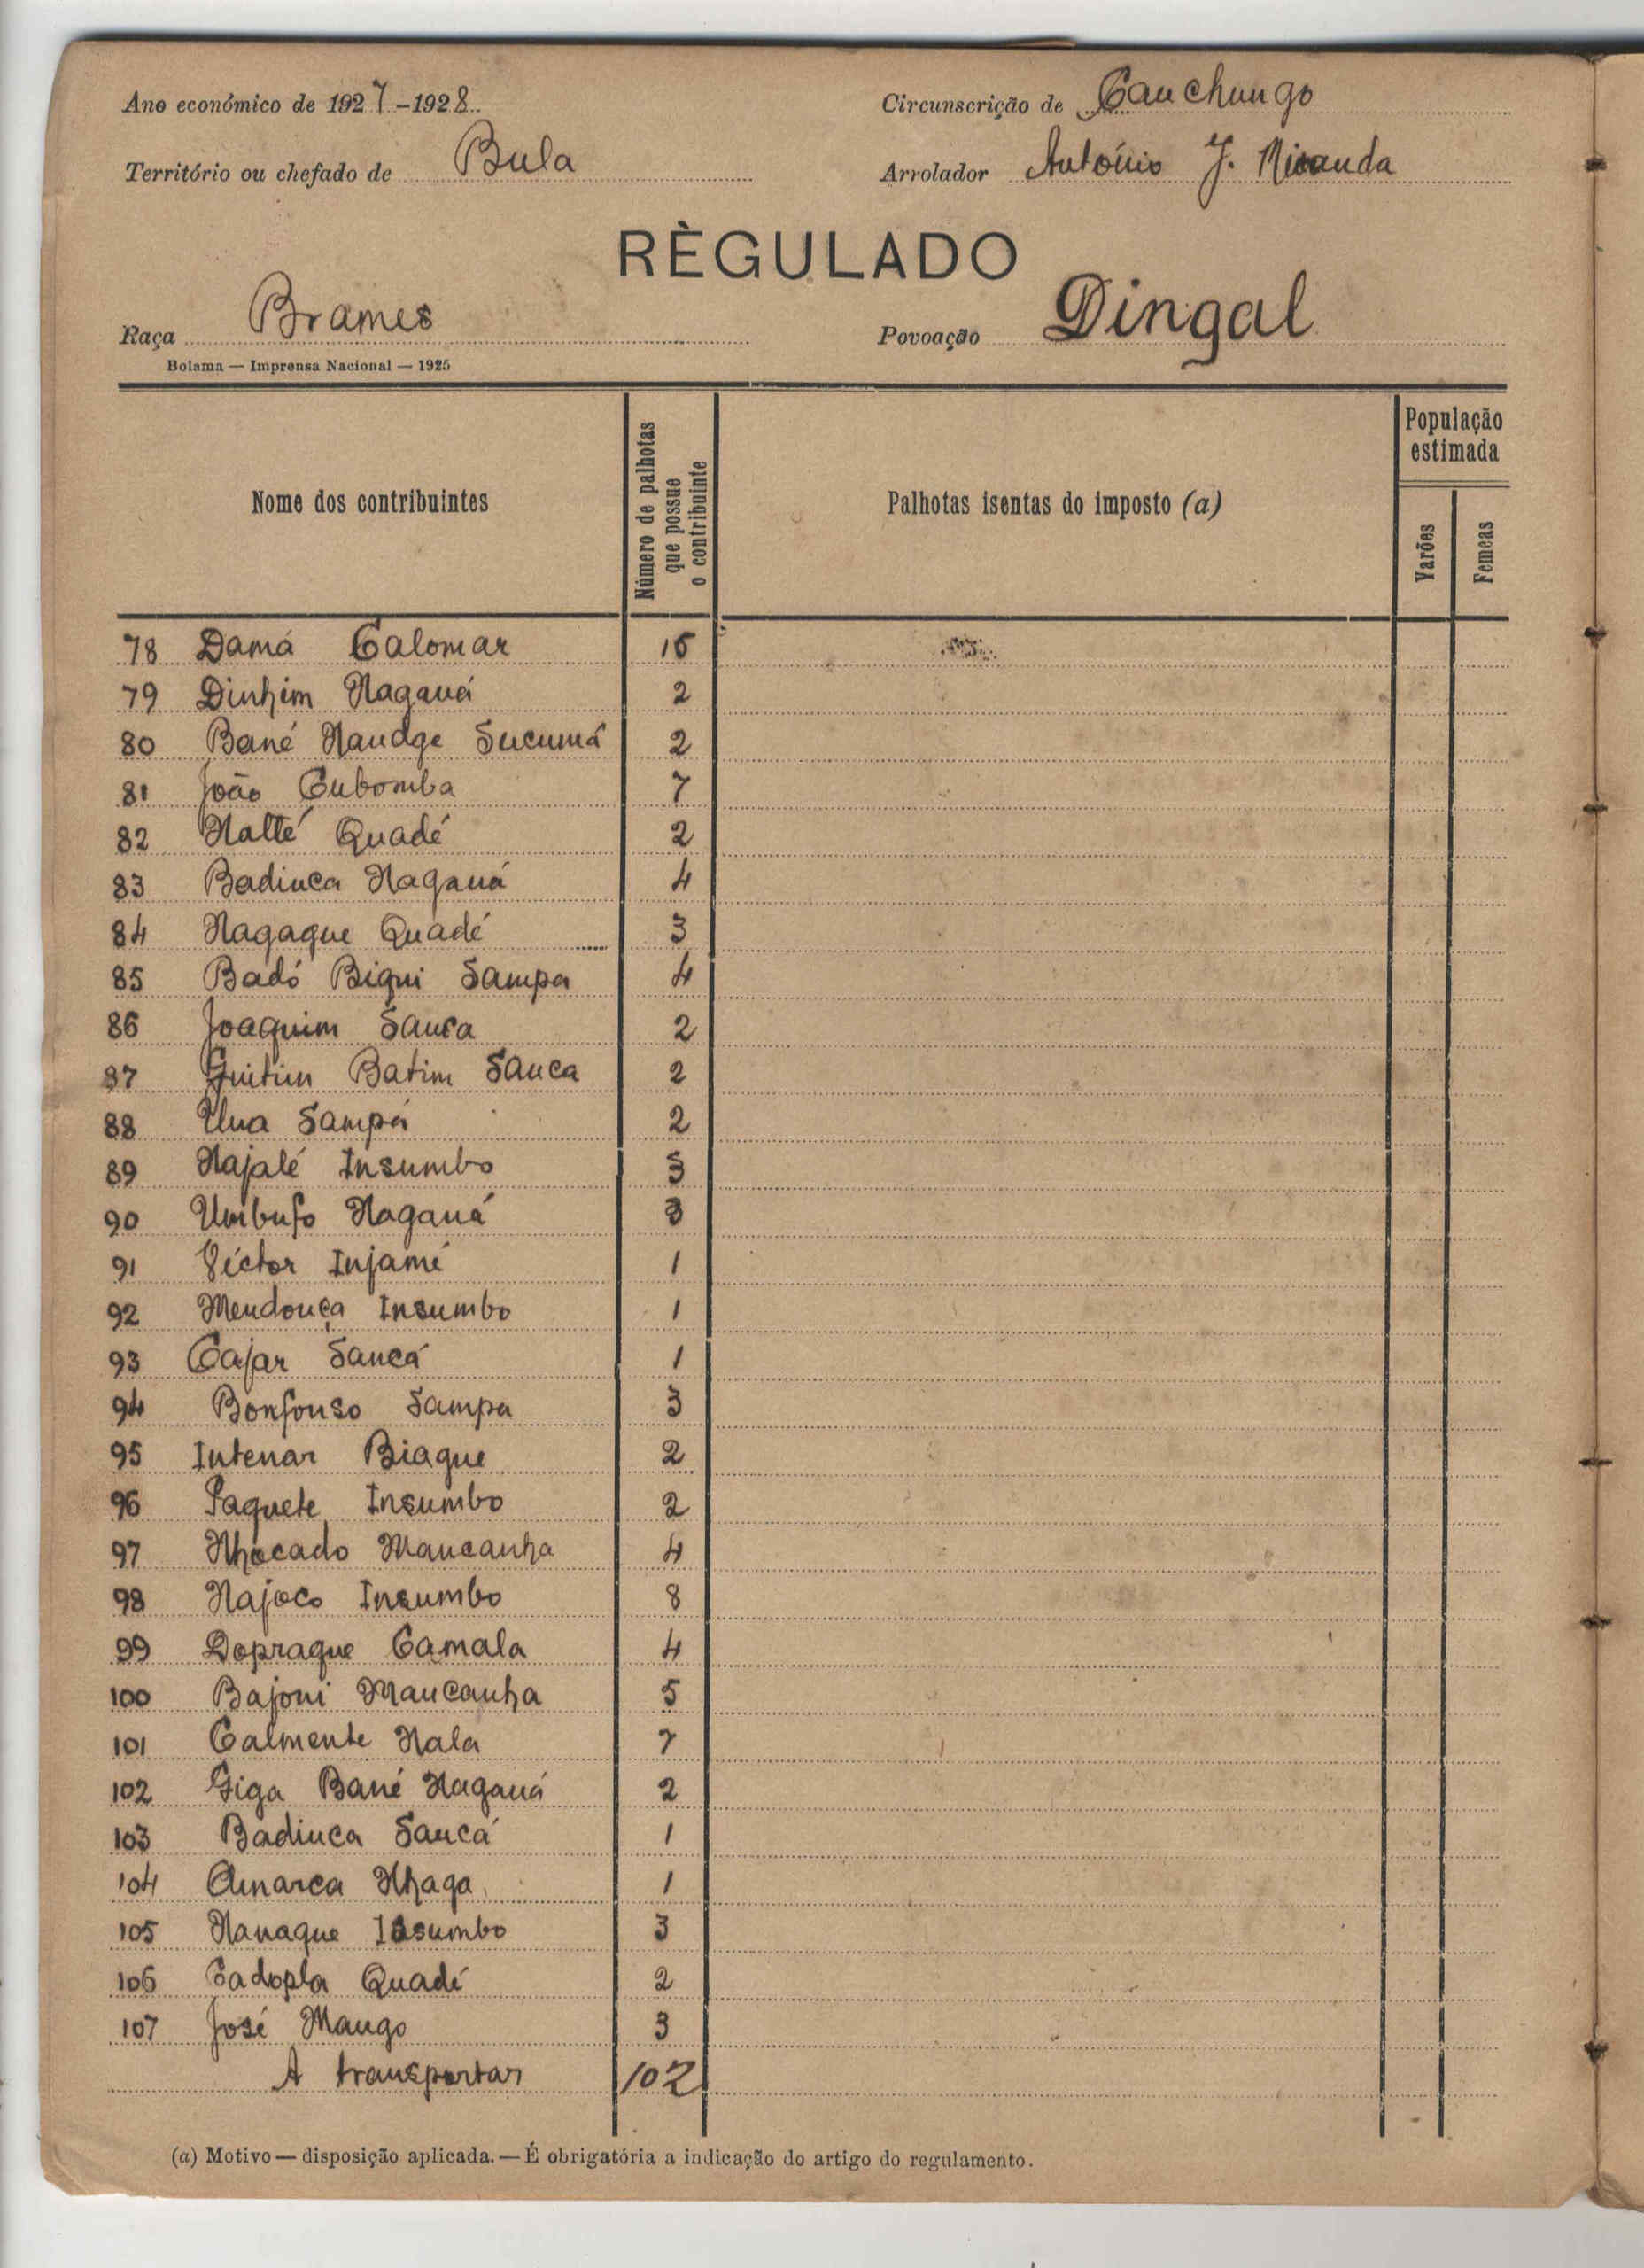 Ano económico de 1927-1928
Circunscrição de Canchungo
Território ou chefado de Bula
Arrolador António J. Miranda
RÈGULADO
Raça Brames
Povoação Dingal
Bolama — Imprensa Nacional — 1925
Nome dos contribuintes
Número de palhotas
que possue
o contribuinte
Palhotas isentas do imposto (a)
População
estimada
Varões
Femeas
78 Damá Calomar 16
79 Dinhim Naganá 2
80 Bané Nandge Sucumá 2
81 João Cubomba 7
82 Nalté Quadé 2
83 Badinca Naganá 4
84 Nagaque Quadé 3
85 Badó Biqui Sampa 4
86 Joaquim Sanca 2
87 Guitin Batim Sanca 2
88 Una Sampá 2
89 Najalé Insumbo 3
90 Umbufo Naganá 3
91 Víctor Injamé 1
92 Mendonça Insumbo 1
93 Cajar Sancá 1
94 Bonfonso Sampa 3
95 Intenar Biague 2
96 Paquete Insumbo 2
97 Nhocado Mancanha 4
98 Najoco Insumbo 8
99 Dopraque Camala 4
100 Bajoni Mancanha 5
101 Calmente Nala 7
102 Giga Bané Naganá 2
103 Badinca Sancá 1
104 Amarca Nhaga 1
105 Nanaque Insumbo 3
106 Cadopla Quadé 2
107 José Mango 3
A transportar 102
(a) Motivo — disposição aplicada. — É obrigatória a indicação do artigo do regulamento.